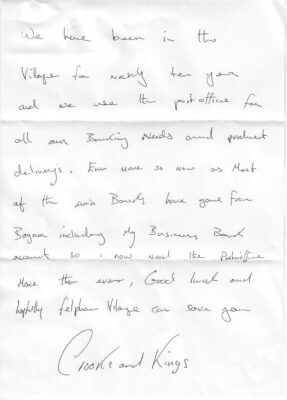 We have been in the
Village for nearly ten years
and we use the post office for
all our Banking Needs and product
deliverys. Even more so now as Most
of the main Banks have gone from
Bognor including My Business Bank
account so i now need the Postoffice
More than ever, Good luck and
hopfully felpham Village can save you
Crooks and Kings